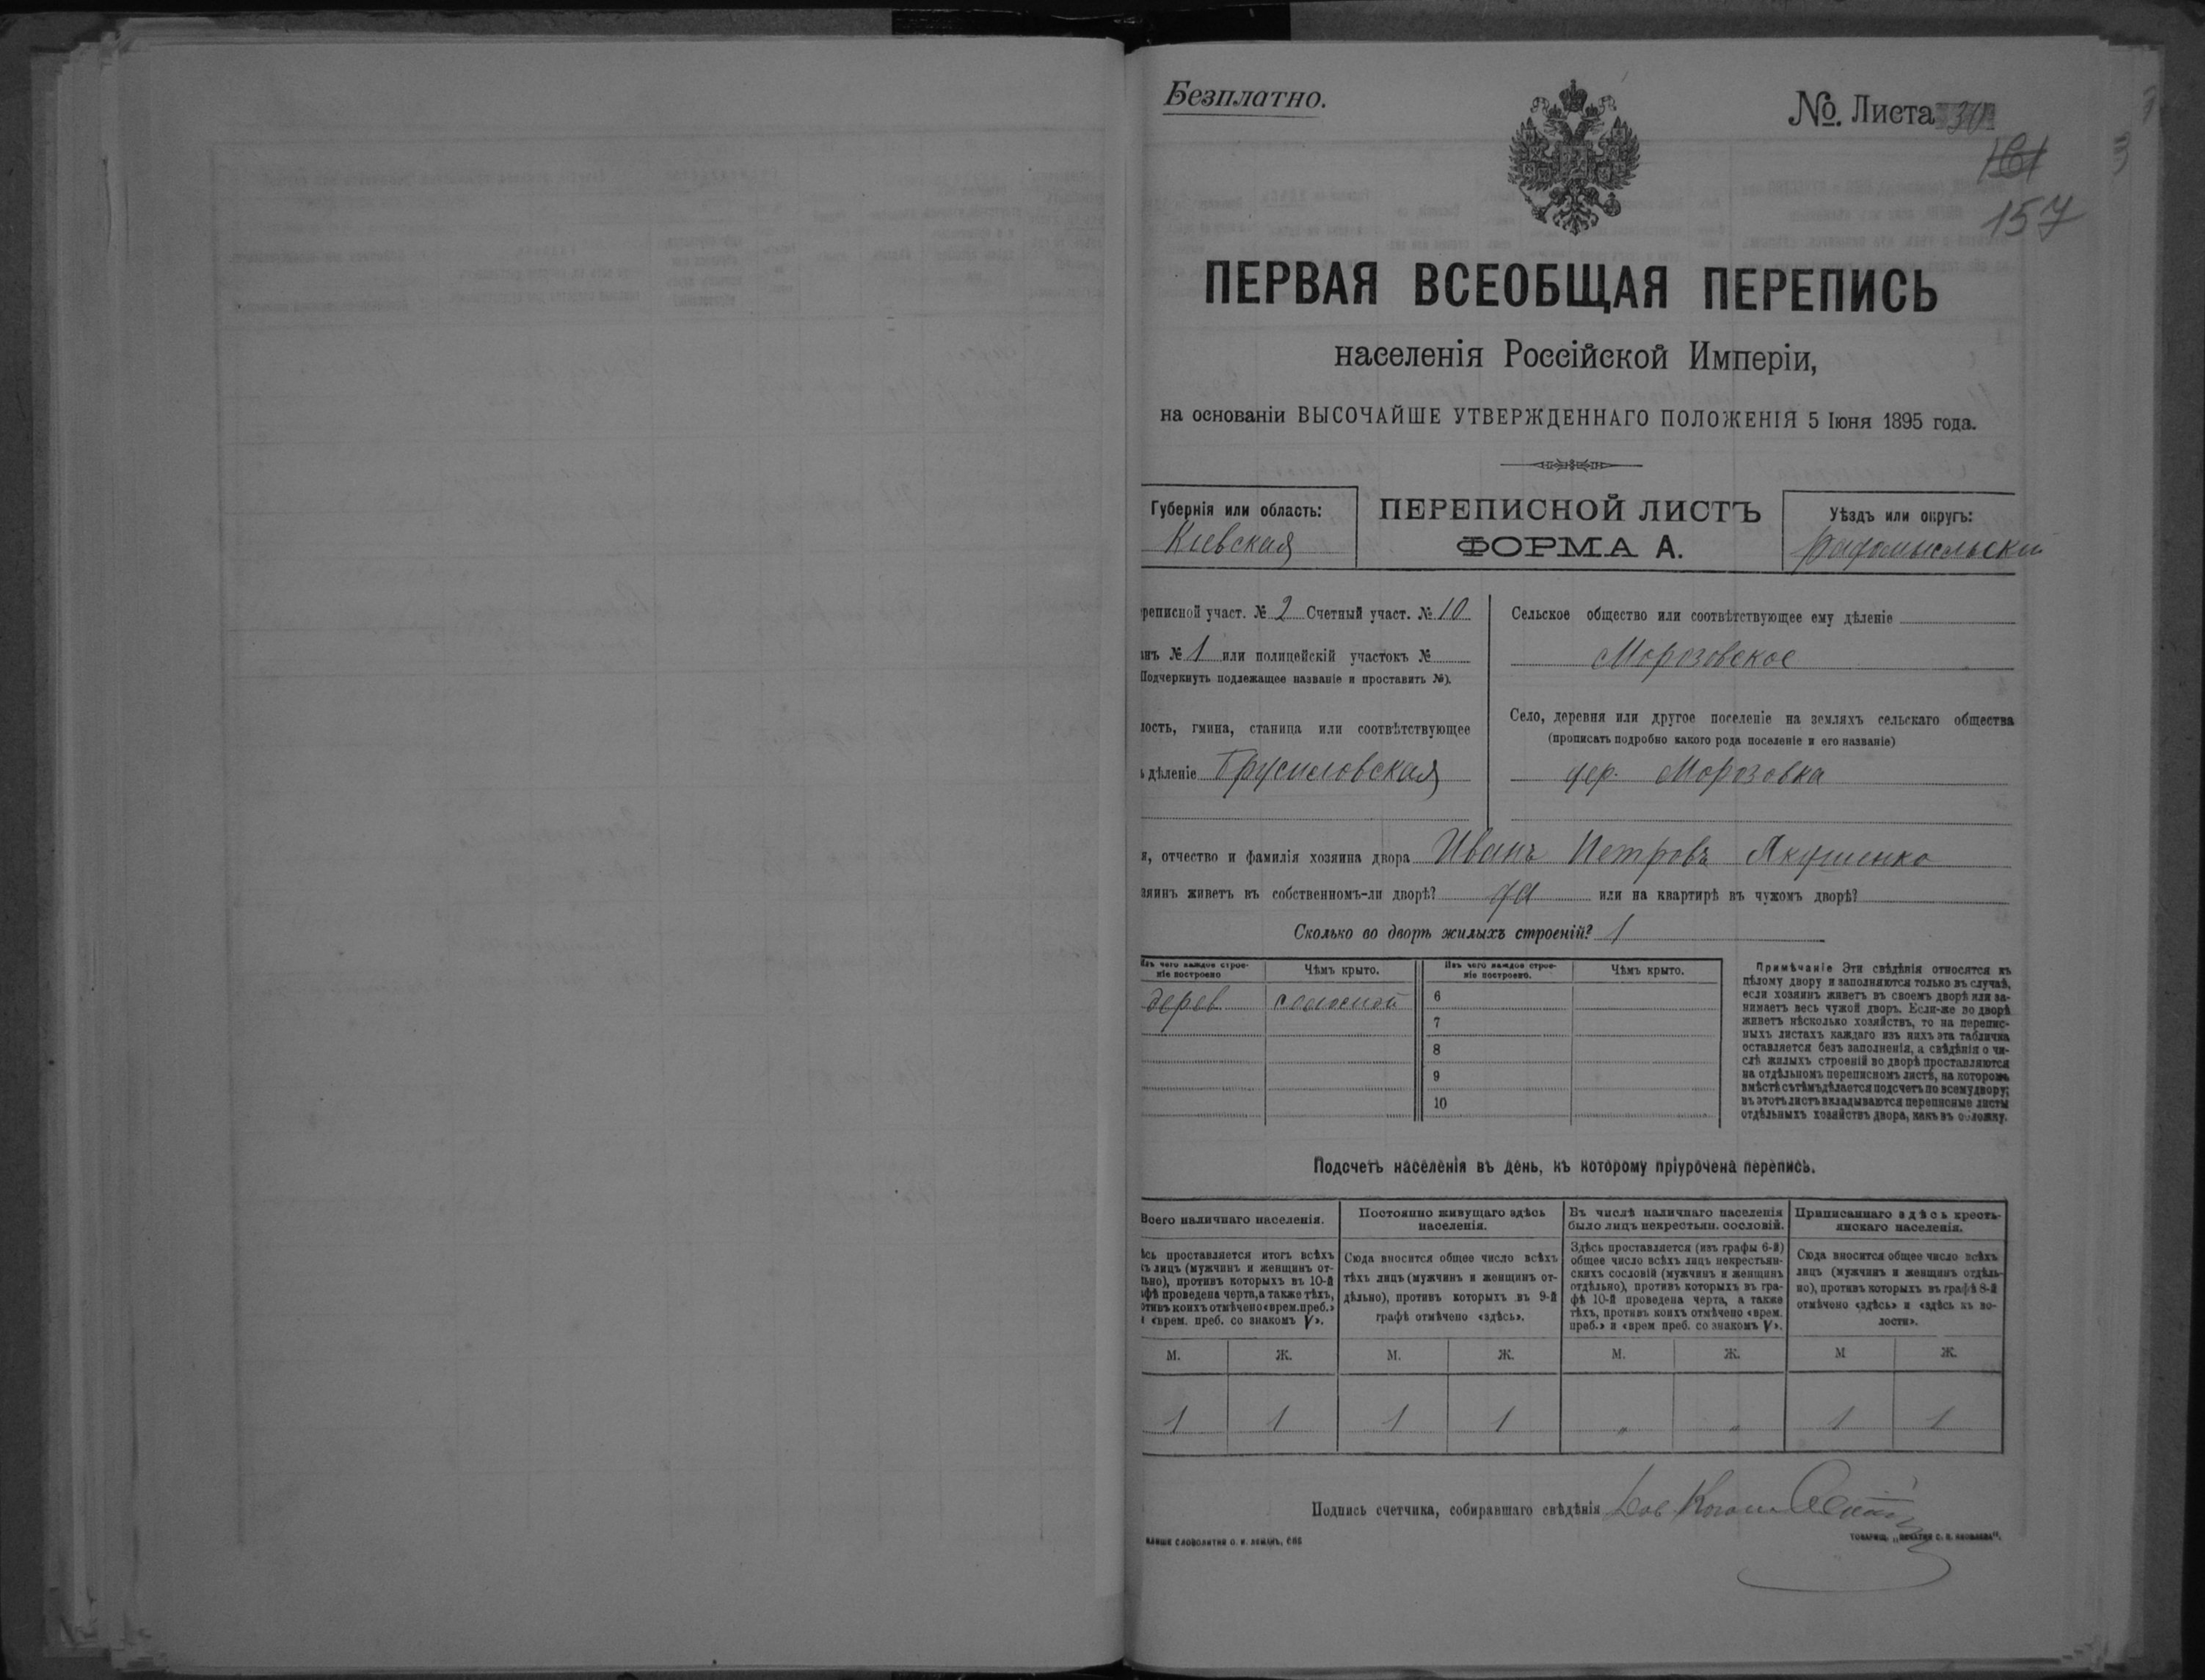 Безплатно.
№. Листа 30
161
157
ПЕРВАЯ ВСЕОБЩАЯ ПЕРЕПИСЬ
населенія Россійской Имперіи,
на основаніи ВЫСОЧАЙШЕ УТВЕРЖДЕННАГО ПОЛОЖЕНІЯ 5 Іюня 1895 года.
Губернія или область:
Кіевская
ПЕРЕПИСНОЙ ЛИСТЪ
ФОРМА А.
Уѣздъ или округъ:
Радомысльскій
реписной участ. № 2 Счетный участ. № 10
нъ № 1 или полицейскій участокъ №
Подчеркнуть подлежащее названіе и проставить №).
лость, гмина, станица или соотвѣтствующее
ъ дѣленіе Брусиловская
Сельское общество или соотвѣтствующее ему дѣленіе
Морозовское
Село, деревня или другое поселеніе на земляхъ сельскаго общества
(прописать подробно какого рода поселеніе и его названіе)
дер. Морозовка
я, отчество и фамилія хозяина двора Иванъ Петровъ Якушенко
зяинъ живетъ въ собственномъ-ли дворѣ? да или на квартирѣ въ чужомъ дворѣ?
Сколько во дворѣ жилыхъ строеній? 1
Изъ чего каждое строеніе построено
Чѣмъ крыто.
Изъ чего каждое строеніе построено.
Чѣмъ крыто.
дерев соломой
6
7
8
9
10
Примѣчаніе Эти свѣдѣнія относятся къ
цѣлому двору и заполняются только въ случаѣ,
если хозяинъ живетъ въ своемъ дворѣ или за-
нимаетъ весь чужой дворъ. Если-же во дворѣ
живетъ нѣсколько хозяйствъ, то на перепис-
ныхъ листахъ каждаго изъ нихъ эта табличка
оставляется безъ заполненія, а свѣдѣнія о чи-
слѣ жилыхъ строеній во дворѣ проставляются
на отдѣльномъ переписномъ листѣ, на которомъ
вмѣстѣ съ тѣмъ дѣлается подсчетъ по всему двору;
въ этотъ листъ вкладываются переписные листы
отдѣльныхъ хозяйствъ двора, какъ въ обложку.
Подсчетъ населенія въ день, къ которому пріурочена перепись.
Всего наличнаго населенія.
ѣсь проставляется итогъ всѣхъ
ъ лицъ (мужчинъ и женщинъ от-
ьно), противъ которыхъ въ 10-й
фѣ проведена черта, а также тѣхъ,
отивъ коихъ отмѣчено «врем. преб.»
и «врем. преб. со знакомъ V».
Постоянно живущаго здѣсь
населенія.
Сюда вносится общее число всѣхъ
тѣхъ лицъ (мужчинъ и женщинъ от-
дѣльно), противъ которыхъ въ 9-й
графѣ отмѣчено «здѣсь».
Въ числѣ наличнаго населенія
было лицъ некрестьян. сословій.
Здѣсь проставляется (изъ графы 6-й)
общее число всѣхъ лицъ некрестьян-
скихъ сословій (мужчинъ и женщинъ
отдѣльно), противъ которыхъ въ гра-
фѣ 10-й проведена черта, а также
тѣхъ, противъ коихъ отмѣчено «врем.
преб.» и «врем преб. со знакомъ V».
Приписаннаго здѣсь кресть-
янскаго населенія.
Сюда вносится общее число всѣхъ
лицъ (мужчинъ и женщинъ отдѣль-
но), противъ которыхъ въ графѣ 8-й
отмѣчено «здѣсь» и «здѣсь къ во-
лости».
М. Ж. М. Ж. М. Ж. М Ж.
1 1 1 1 " " 1 1
Подпись счетчика, собиравшаго свѣдѣнія
КЛИШЕ СЛОВОЛИТНИ О. И. ЛЕМАНЪ, СПБ
ТОВАРИЩ. „ПЕЧАТНЯ С. П. ЯКОВЛЕВА".